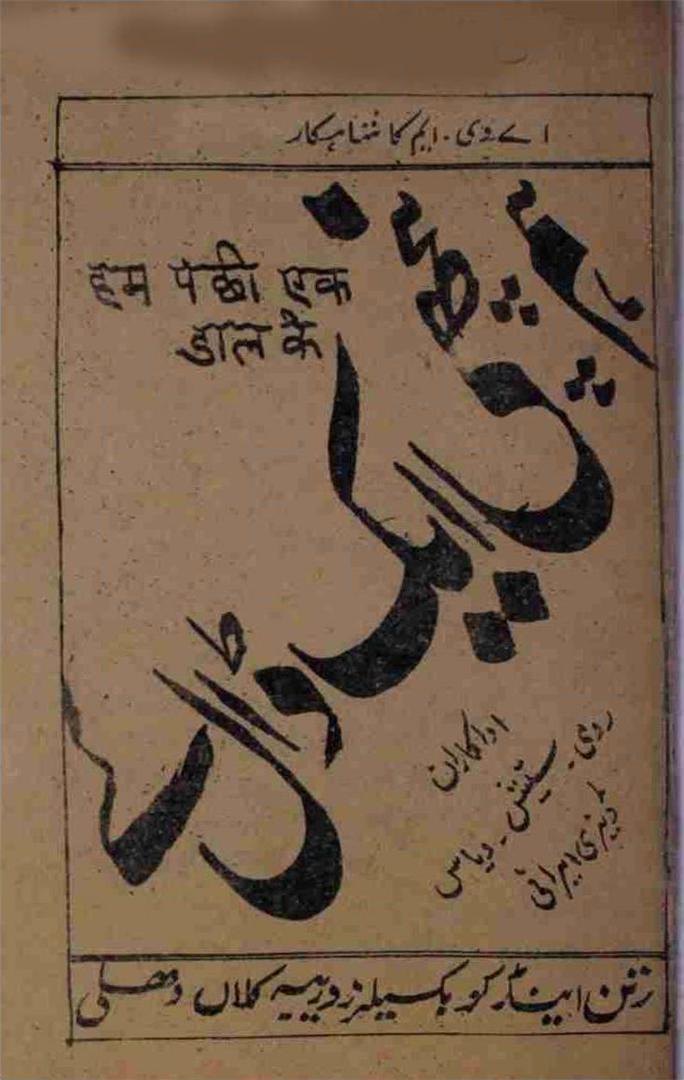 اے وی۔ایم کا شاہکار
ہم پنچھی ایک ڈال کے
हम पंछी एक
डाल के
اداکاران
رومی۔ ستیش۔ دیاس
ڈیزی ایرانی
رتن اینڈ کو بکسیلرز دریبہ کلاں دہلی